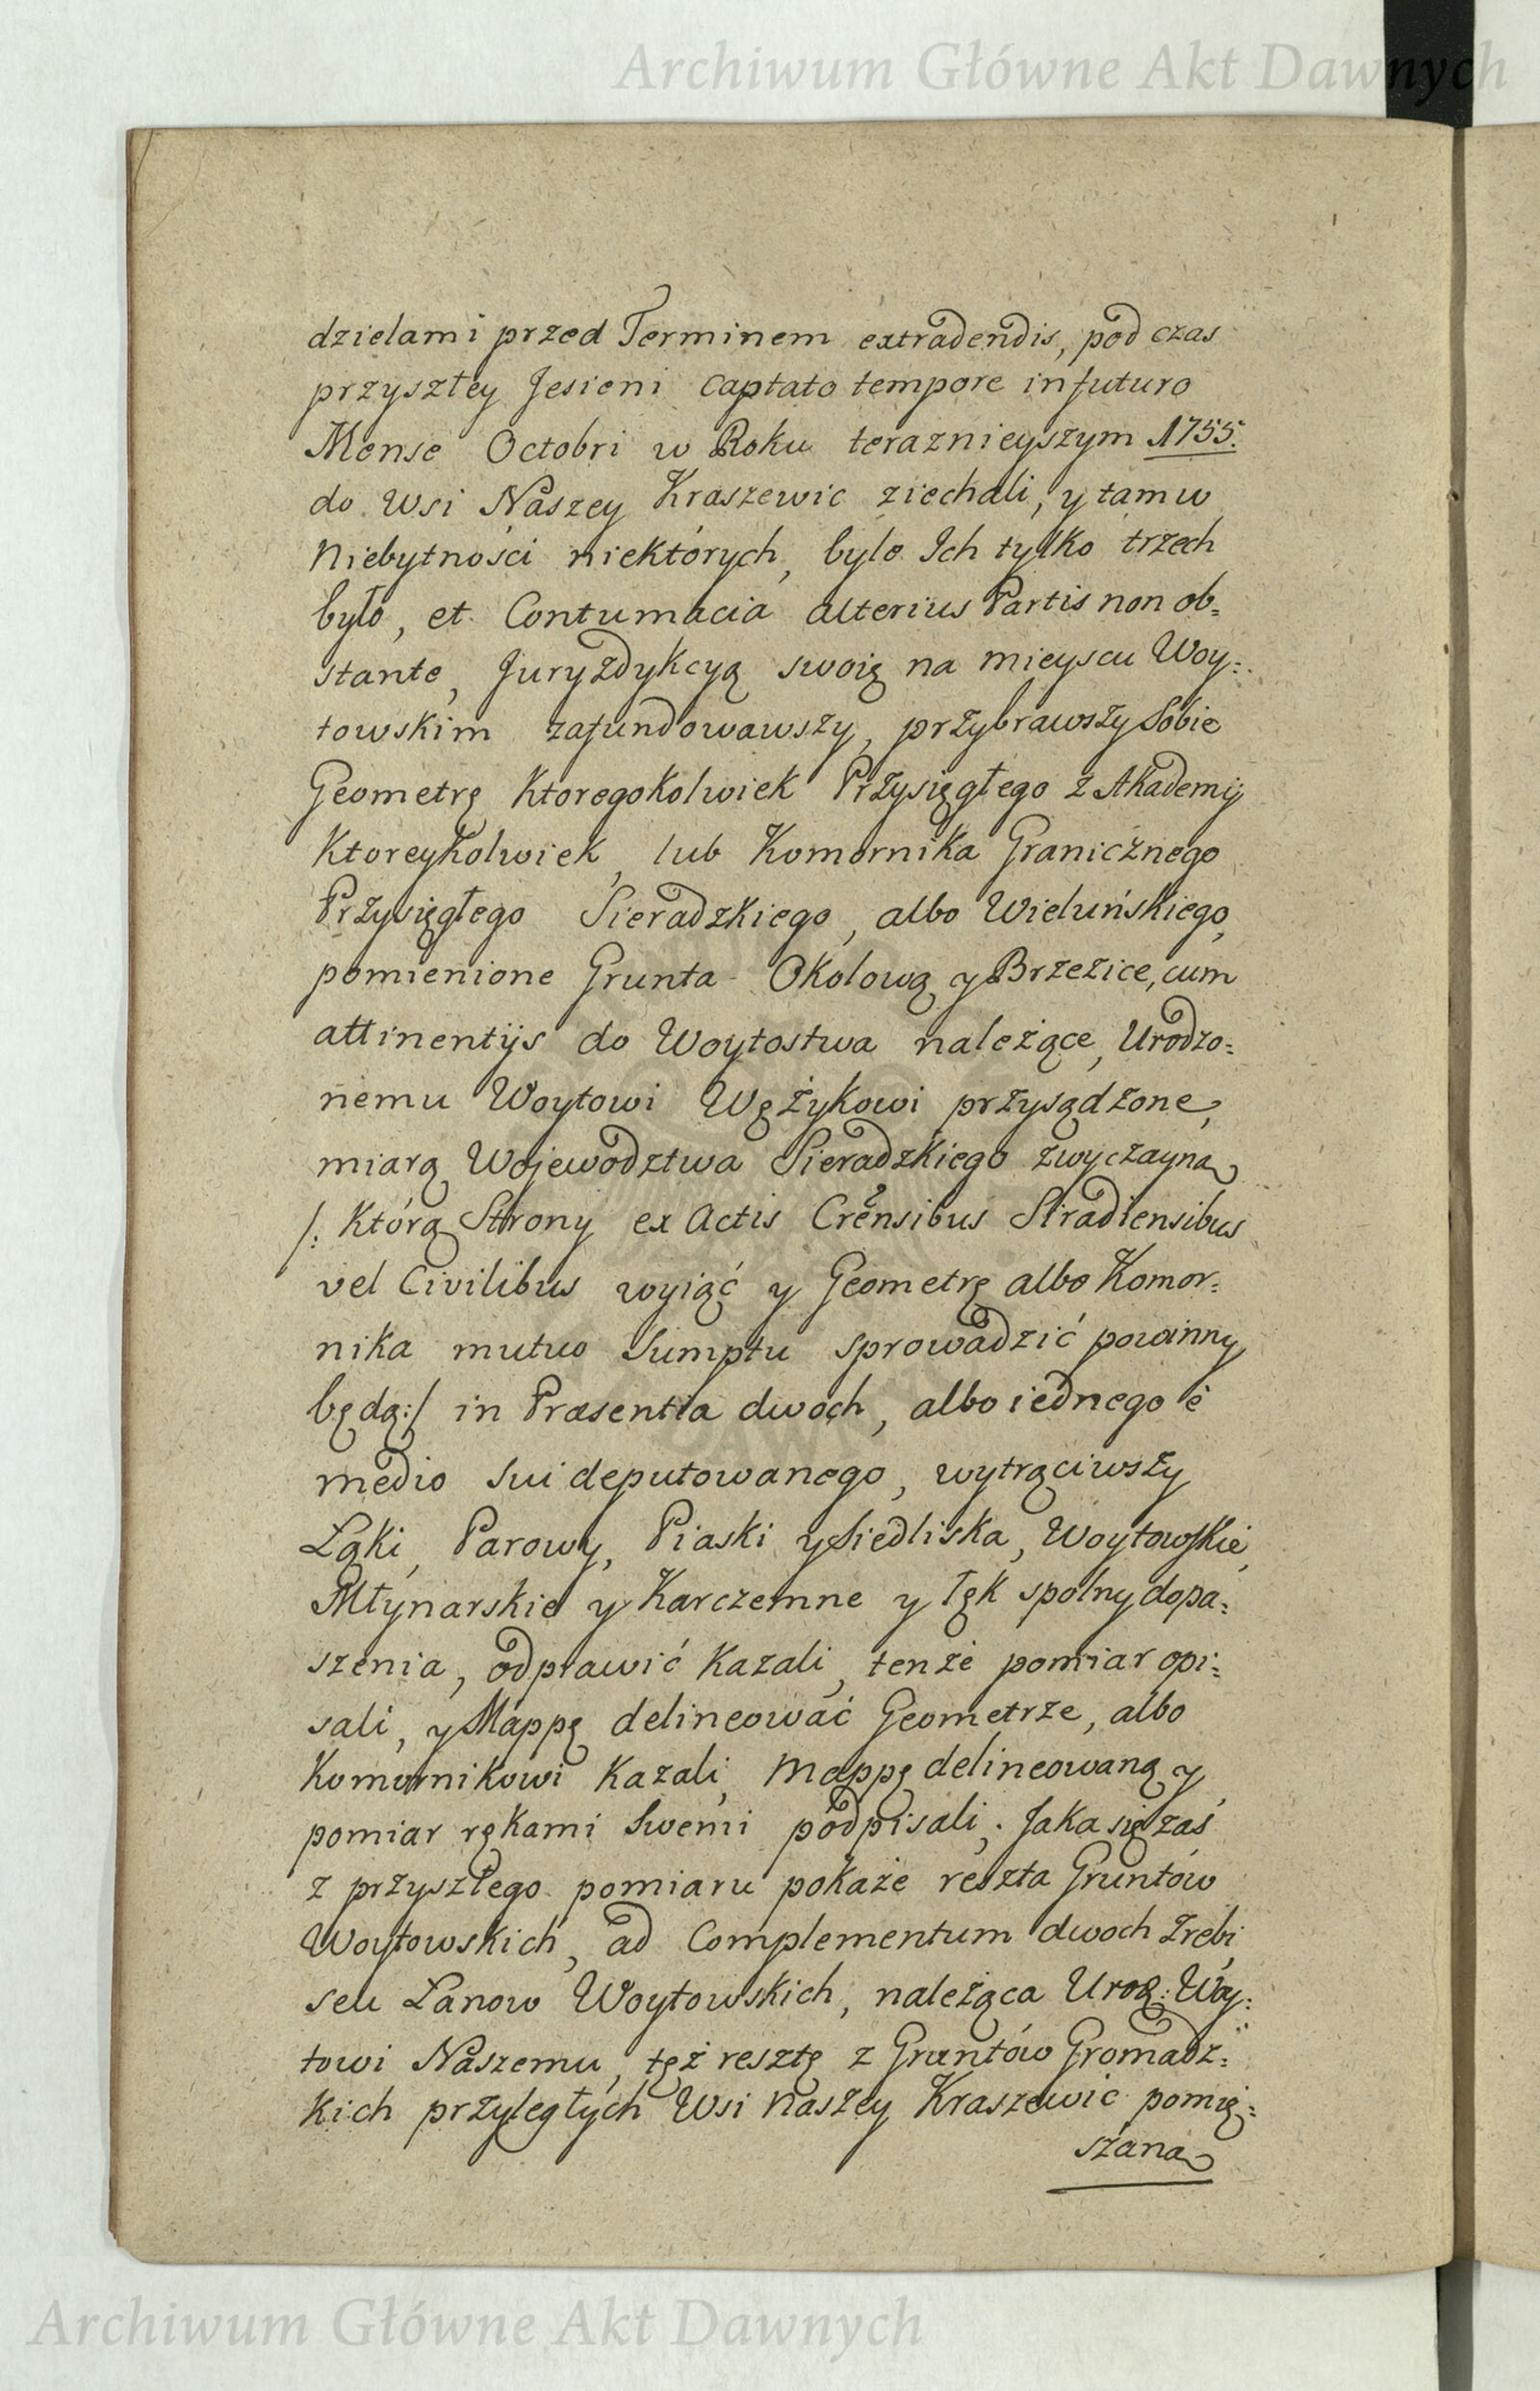 Archiwum Główne Akt Dawnych
dzielami przed Terminem extradendis, pod czas
przyszłey Jesieni captato tempore in futuro
Mense Octobri w Roku teraznieyszym 1755.
do Wsi Naszey Kraszewic ziechali, y tam w
Niebytności niektórych, byle Ich tylko trzech
było, et Contumacia alterius Partis non ob=
stante, Juryzdykcyą swoię na mieyscu Woy=
towskim zafundowawszy, przybrawszy Sobie
Geometrę Ktoregokolwiek Przysięgłego z Akademij
Ktoreykolwiek, lub Komornika Granicznego
Przysięgłego Sieradzkiego, albo Wieluńskiego,
pomienione Grunta Okolową y Brzezice, cum
attinentijs do Woytostwa należące, Urodzo=
nemu Woytowi Wężykowi przysądzone,
miarą Wojewodztwa Sieradzkiego zwyczayną
/: Którą Strony ex Actis Crensibus Siradiensibus
vel Civilibus wyiąć y Geometrę albo Komor=
nika mutuo Sumptu sprowadzić powinny
będą:/ in Præsentia dwoch, albo iednego è
medio Sui deputowanego, wytrąciwszy
Łąki, Parowy, Piaski y Siedliska, Woytowskie,
Młynarskie y Karczemne y łęk spolny do pa=
szenia, odprawić Kazali, tenże pomiar opi=
sali, y Mappę delineować Geometrze, albo
Komornikowi Kazali, Mappę delineowaną y
pomiar rękami Swemi podpisali, Jaka się zaś
z przyszłego pomiaru pokaże reszta Gruntów
Woytowskich, ad Complementum dwoch Źrebi
seu Łanow Woytowskich, należąca Uroą: Woy=
towi Naszemu, tęż resztę z Gruntów Gromadz=
kich przyległych Wsi Naszey Kraszewic pomię=
szana
Archiwum Główne Akt Dawnych